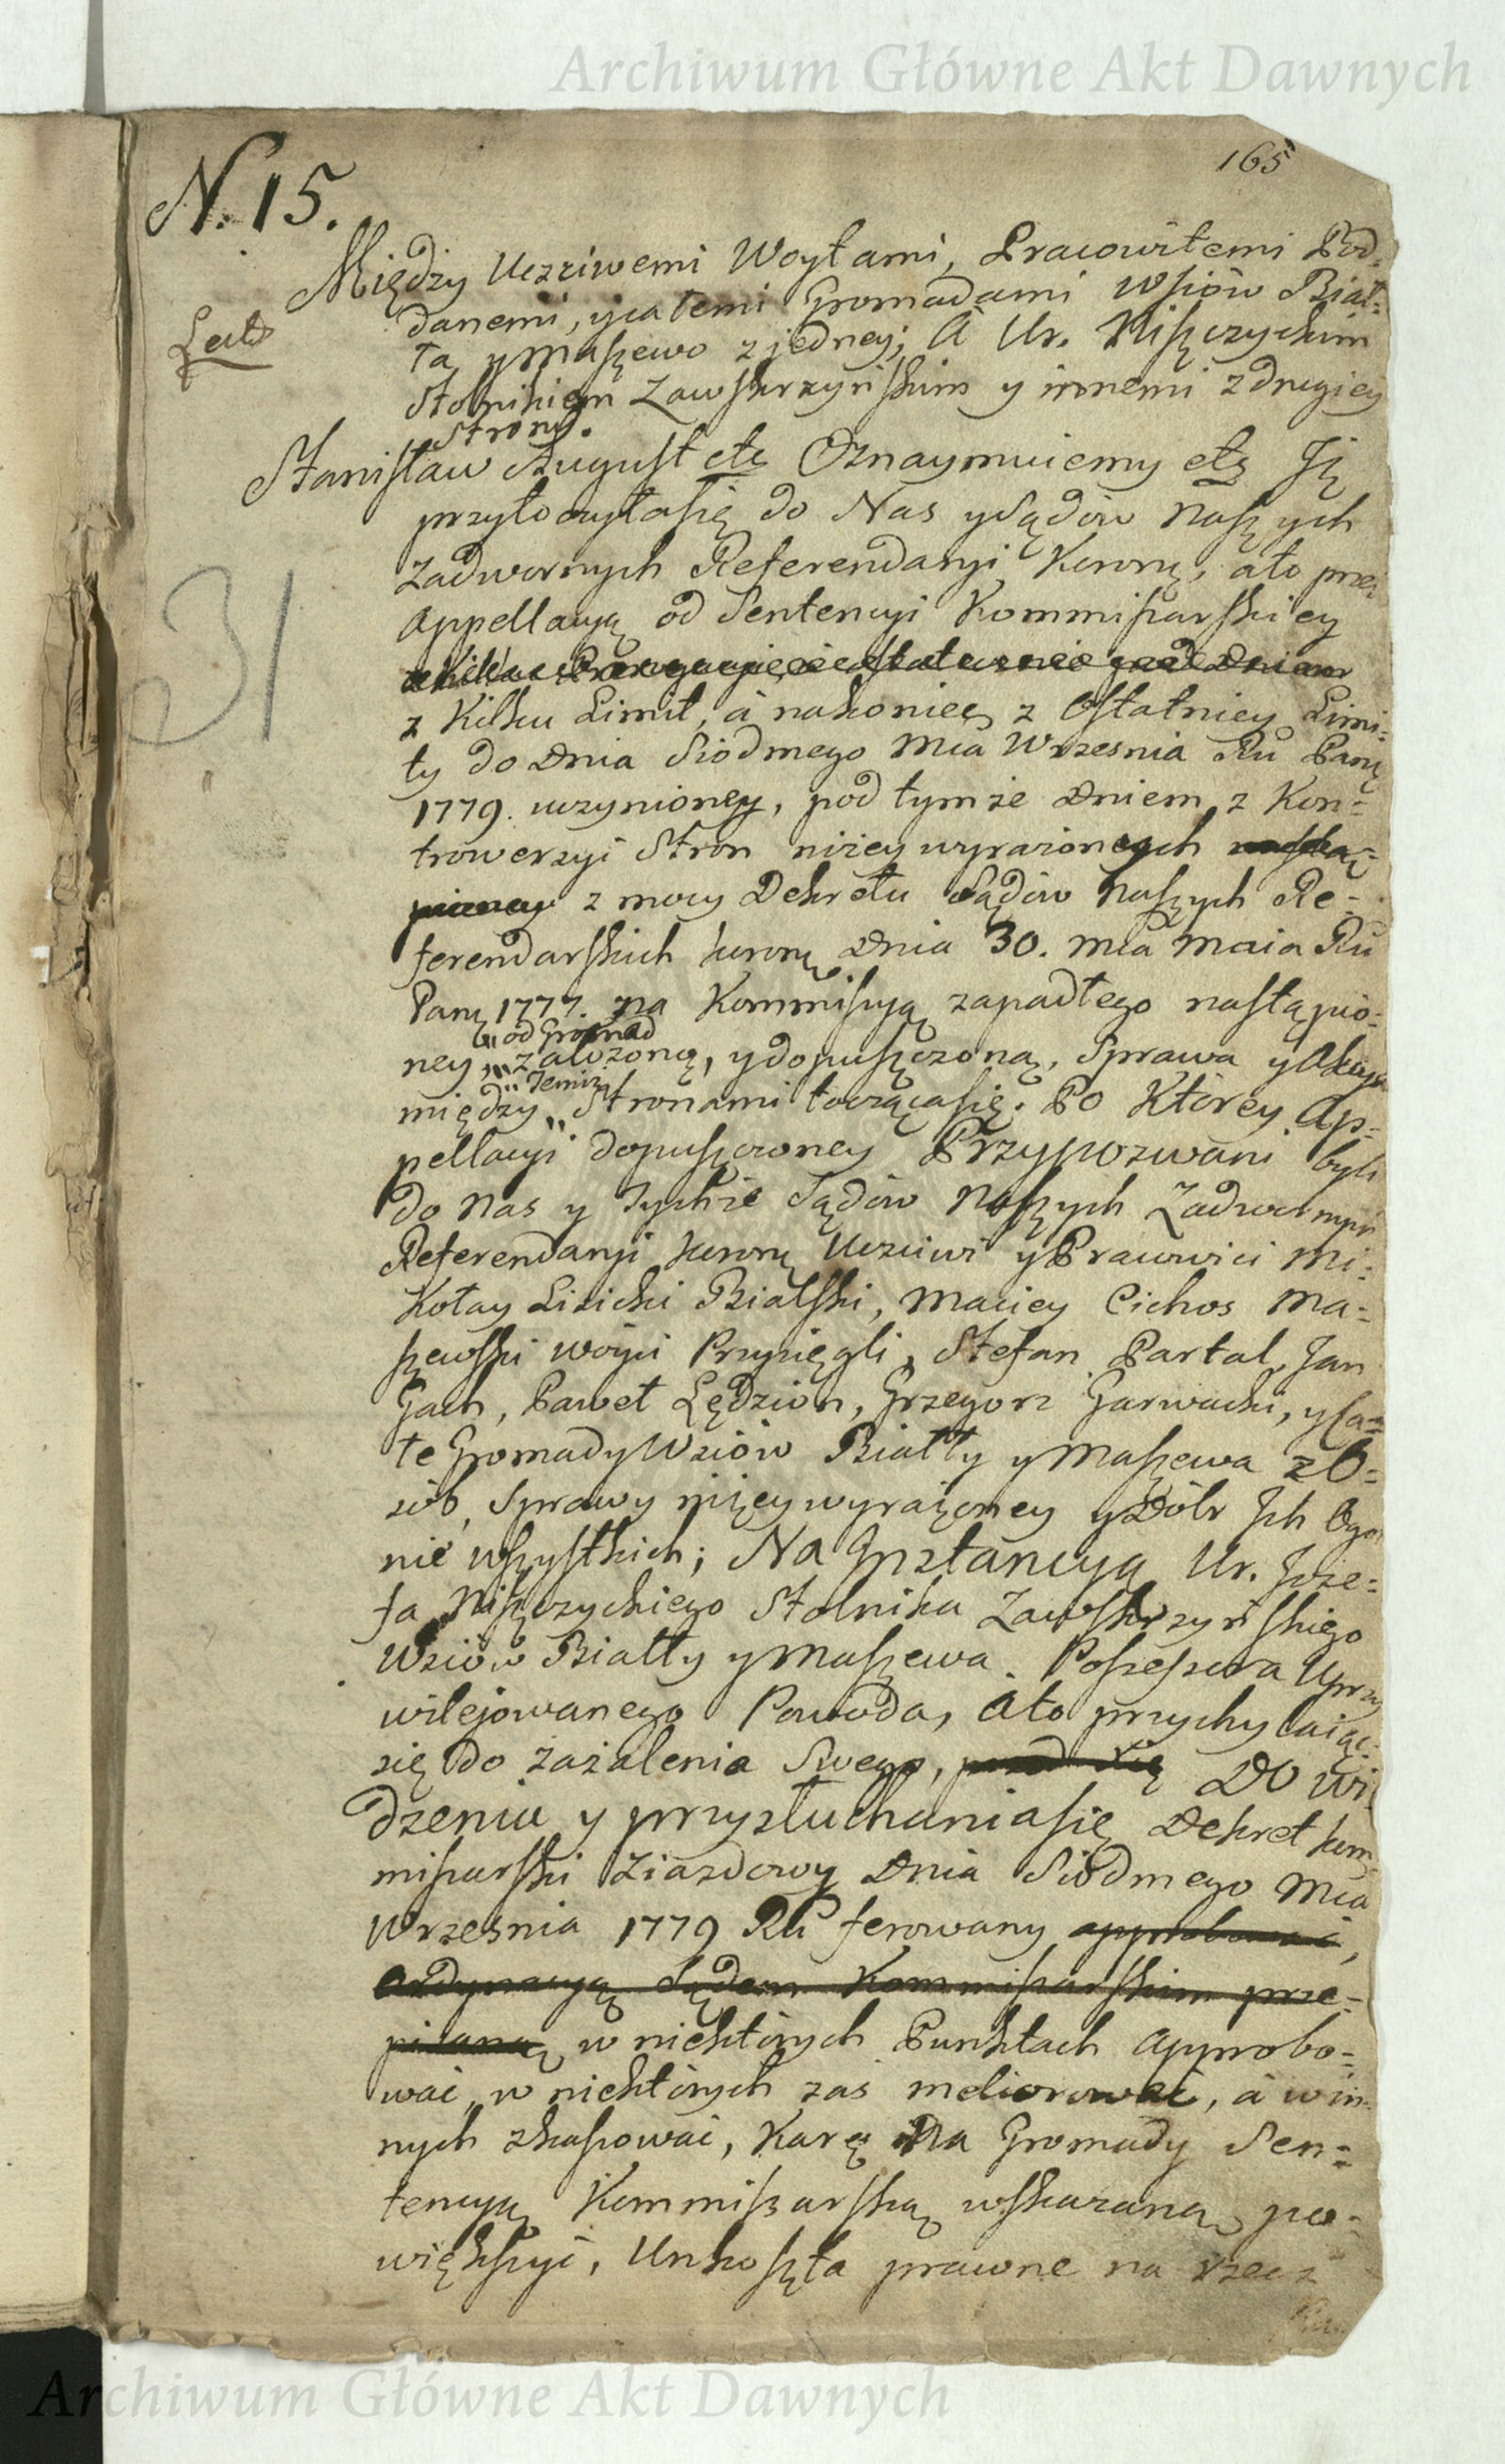 Archiwum Główne Akt Dawnych
165
N. 15.
Między Uczciwemi Woytami, Pracowitemi Pod=
danemi, y całemi Gromadami Wsiów Biał=
ła y Maszewo z jedney; A Ur. Niszczyckim
Stolnikiem Zawskrzyńskim y innemi z drugiey
Strony.
Stanisław August etc Oznaymuiemy etc Iż
przytoczyła się do Nas y Sądów Naszych
Zadwornych Referendaryi Koronę, a to przez
Appellacyą od Sentencyi Kommissarskiey
z Kilku Limit, a nakoniec z Ostatniey Limi=
ty do Dnia Siodmego Mca Wrzesnia Ru Panę
1779. uczynioney, pod tymże Dniem z Kon=
trowersyi Stron niżey wyrażonych
z mocy Dekretu Sądów Naszych Re=
ferendarskich koronę Dnia 30. Mca Maia Ru
Panę 1777. na Kommissyą zapadłego nastąpio=
od Gromad
ney, założoną, y dopuszczoną, Sprawa y Akcya
Temiż
między Stronami tocząca się. Po Którey Ap=
pellacyi dopuszczoney Przypozwani byli
do Nas y Tychże Sądów Naszych Zadwornych
Referendaryi koronę Uczciwi y Pracowici Mi=
kołay Lisicki Bialski, Maciey Cichos Ma=
szewski woyci Przysięgli, Stefan Partal, Jan
Gach, Paweł Lędzion, Grzegorz Garwacki, y Ca=
łe Gromady Wsiów Biały y Maszewa z O=
sób, Sprawy niżey wyrażoney y Dóbr Ich Ogol
nie wszystkich; Na Instancyą Ur. Joze=
fa Niszczyckiego Stolnika Zawskrzyńskiego
Wsiów Biały y Maszewa Possessora Uprzy
wilejowanego Powoda, a to przychylaiąc
się do zażalenia Swego, Do wi
dzenia y przysłuchania się Dekret kom
missarski Ziazdowy Dnia Siodmego Mca
Wrzesnia 1779 Ru ferowany approbować,
ordynacyą Sądem Kommissarskim prze=
pisaną w niektórych Punktach approbo=
wać, w niektórych zaś meliorować, a w in=
nych skassować, Karę Na Gromady Sen=
tencyą Kommissarską wskazaną, po=
większyć, Unkoszta prawne na rzecz
Lecto
31
Archiwum Główne Akt Dawnych